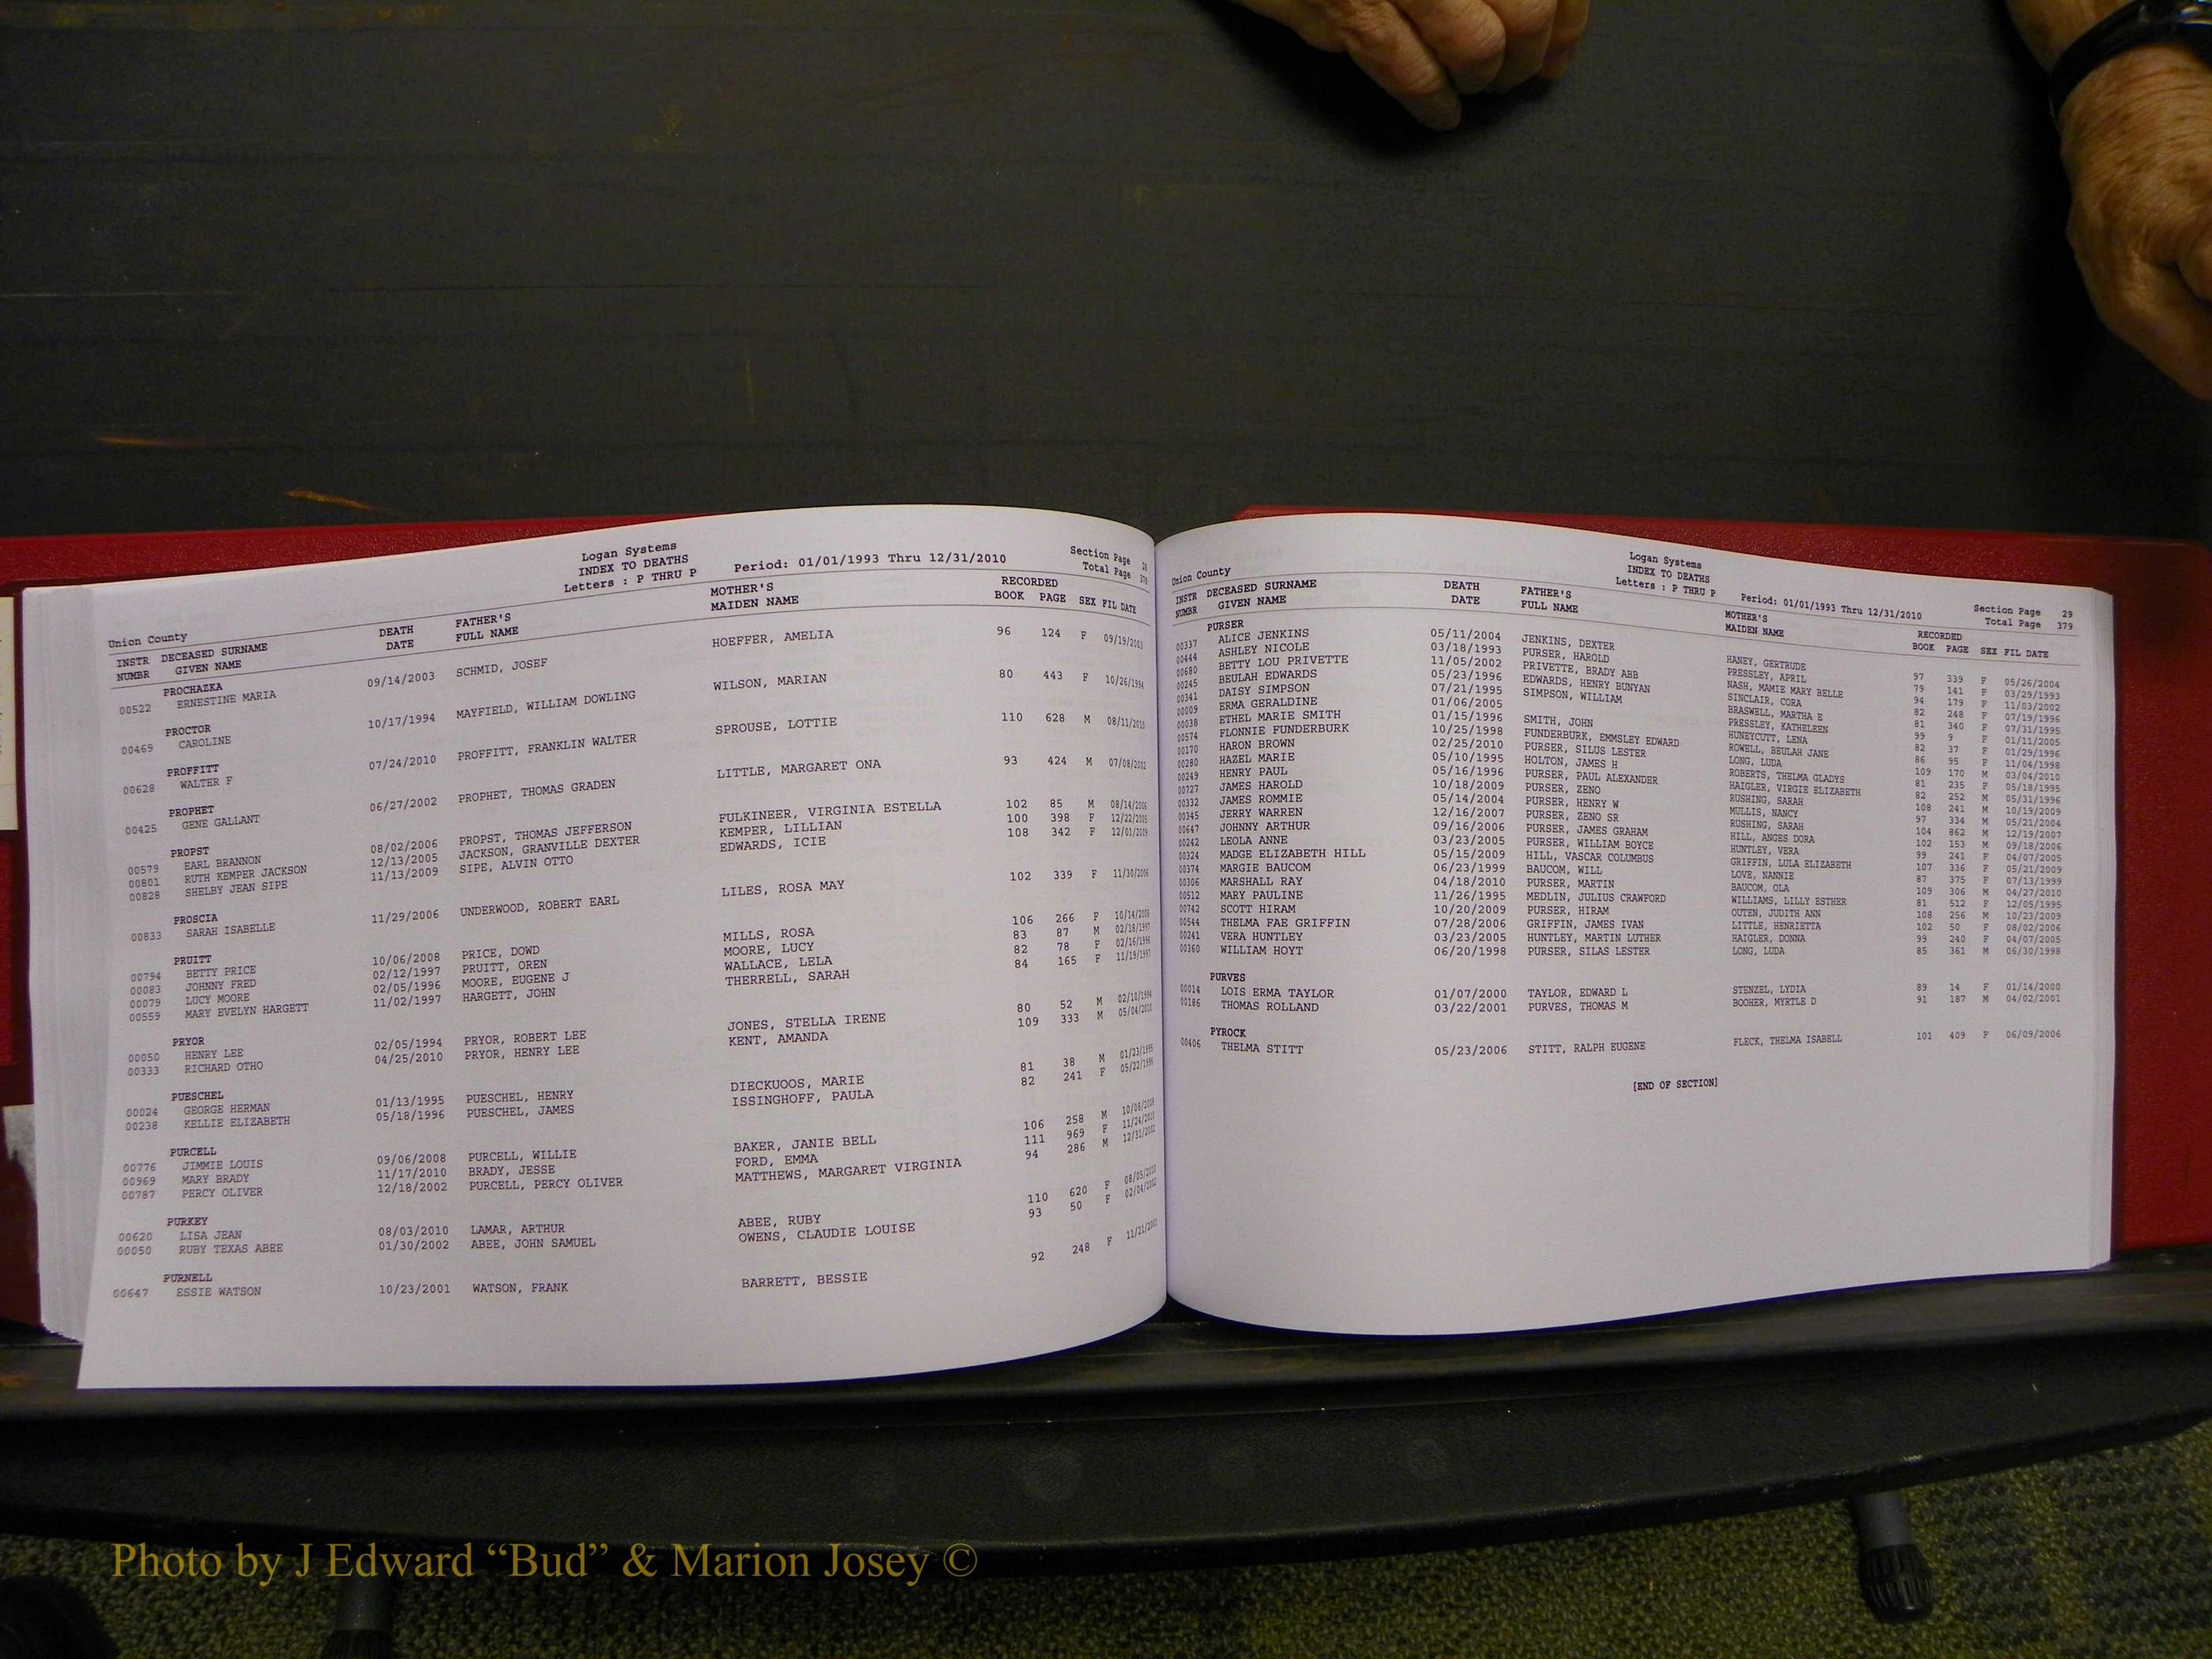 Logan Systems
INDEX TO DEATHS
Letters : P THRU P Period: 01/01/1993 Thru 12/31/2010
Section Page 28
Total Page 378
Union County
INSTR DECEASED SURNAME DEATH FATHER'S MOTHER'S RECORDED
NUMBR GIVEN NAME DATE FULL NAME MAIDEN NAME BOOK PAGE SEX FIL DATE
PROCHAZKA
00522 ERNESTINE MARIA 09/14/2003 SCHMID, JOSEF HOEFFER, AMELIA 96 124 F 09/19/2003
PROCTOR
00469 CAROLINE 10/17/1994 MAYFIELD, WILLIAM DOWLING WILSON, MARIAN 80 443 F 10/26/1994
PROFFITT
00628 WALTER F 07/24/2010 PROFFITT, FRANKLIN WALTER SPROUSE, LOTTIE 110 628 M 08/11/2010
PROPHET
00425 GENE GALLANT 06/27/2002 PROPHET, THOMAS GRADEN LITTLE, MARGARET ONA 93 424 M 07/08/2002
PROPST
00579 EARL BRANNON 08/02/2006 PROPST, THOMAS JEFFERSON FULKINEER, VIRGINIA ESTELLA 102 85 M 08/14/2006
00801 RUTH KEMPER JACKSON 12/13/2005 JACKSON, GRANVILLE DEXTER KEMPER, LILLIAN 100 398 F 12/22/2005
00828 SHELBY JEAN SIPE 11/13/2009 SIPE, ALVIN OTTO EDWARDS, ICIE 108 342 F 12/01/2009
PROSCIA
00833 SARAH ISABELLE 11/29/2006 UNDERWOOD, ROBERT EARL LILES, ROSA MAY 102 339 F 11/30/2006
PRUITT
00794 BETTY PRICE 10/06/2008 PRICE, DOWD MILLS, ROSA 106 266 F 10/14/2008
00083 JOHNNY FRED 02/12/1997 PRUITT, OREN MOORE, LUCY 83 87 M 02/18/1997
00079 LUCY MOORE 02/05/1996 MOORE, EUGENE J WALLACE, LELA 82 78 F 02/16/1996
00559 MARY EVELYN HARGETT 11/02/1997 HARGETT, JOHN THERRELL, SARAH 84 165 F 11/19/1997
PRYOR
00050 HENRY LEE 02/05/1994 PRYOR, ROBERT LEE JONES, STELLA IRENE 80 52 M 02/10/1994
00333 RICHARD OTHO 04/25/2010 PRYOR, HENRY LEE KENT, AMANDA 109 333 M 05/04/2010
PUESCHEL
00024 GEORGE HERMAN 01/13/1995 PUESCHEL, HENRY DIECKUOOS, MARIE 81 38 M 01/23/1995
00238 KELLIE ELIZABETH 05/18/1996 PUESCHEL, JAMES ISSINGHOFF, PAULA 82 241 F 05/22/1996
PURCELL
00776 JIMMIE LOUIS 09/06/2008 PURCELL, WILLIE BAKER, JANIE BELL 106 258 M 10/06/2008
00969 MARY BRADY 11/17/2010 BRADY, JESSE FORD, EMMA 111 969 F 11/24/2010
00787 PERCY OLIVER 12/18/2002 PURCELL, PERCY OLIVER MATTHEWS, MARGARET VIRGINIA 94 286 M 12/31/2002
PURKEY
00620 LISA JEAN 08/03/2010 LAMAR, ARTHUR ABEE, RUBY 110 620 F 08/05/2010
00050 RUBY TEXAS ABEE 01/30/2002 ABEE, JOHN SAMUEL OWENS, CLAUDIE LOUISE 93 50 F 02/04/2002
PURNELL
00647 ESSIE WATSON 10/23/2001 WATSON, FRANK BARRETT, BESSIE 92 248 F 11/21/2001
Logan Systems
INDEX TO DEATHS
Letters : P THRU P Period: 01/01/1993 Thru 12/31/2010
Section Page 29
Total Page 379
Union County
INSTR DECEASED SURNAME DEATH FATHER'S MOTHER'S RECORDED
NUMBR GIVEN NAME DATE FULL NAME MAIDEN NAME BOOK PAGE SEX FIL DATE
PURSER
00337 ALICE JENKINS 05/11/2004 JENKINS, DEXTER HANEY, GERTRUDE 97 339 F 05/26/2004
00444 ASHLEY NICOLE 03/18/1993 PURSER, HAROLD PRESSLEY, APRIL 79 141 F 03/29/1993
00680 BETTY LOU PRIVETTE 11/05/2002 PRIVETTE, BRADY ABB NASH, MAMIE MARY BELLE 94 179 F 11/03/2002
00245 BEULAH EDWARDS 05/23/1996 EDWARDS, HENRY BUNYAN SINCLAIR, CORA 82 248 F 07/19/1996
00341 DAISY SIMPSON 07/21/1995 SIMPSON, WILLIAM BRASWELL, MARTHA E 81 340 F 07/31/1995
00009 ERMA GERALDINE 01/06/2005 PRESSLEY, KATHELEEN 99 9 F 01/11/2005
00038 ETHEL MARIE SMITH 01/15/1996 SMITH, JOHN HUNEYCUTT, LENA 82 37 F 01/29/1996
00574 FLONNIE FUNDERBURK 10/25/1998 FUNDERBURK, EMMSLEY EDWARD ROWELL, BEULAH JANE 86 95 F 11/04/1998
00170 HARON BROWN 02/25/2010 PURSER, SILUS LESTER LONG, LUDA 109 170 M 03/04/2010
00280 HAZEL MARIE 05/10/1995 HOLTON, JAMES H ROBERTS, THELMA GLADYS 81 235 F 05/18/1995
00249 HENRY PAUL 05/16/1996 PURSER, PAUL ALEXANDER HAIGLER, VIRGIE ELIZABETH 82 252 M 05/31/1996
00727 JAMES HAROLD 10/18/2009 PURSER, ZENO RUSHING, SARAH 108 241 M 10/19/2009
00332 JAMES ROMMIE 05/14/2004 PURSER, HENRY W MULLIS, NANCY 97 334 M 05/21/2004
00345 JERRY WARREN 12/16/2007 PURSER, ZENO SR RUSHING, SARAH 104 862 M 12/19/2007
00647 JOHNNY ARTHUR 09/16/2006 PURSER, JAMES GRAHAM HILL, ANGES DORA 102 153 M 09/18/2006
00242 LEOLA ANNE 03/23/2005 PURSER, WILLIAM BOYCE HUNTLEY, VERA 99 241 F 04/07/2005
00324 MADGE ELIZABETH HILL 05/15/2009 HILL, VASCAR COLUMBUS GRIFFIN, LULA ELIZABETH 107 336 F 05/21/2009
00374 MARGIE BAUCOM 06/23/1999 BAUCOM, WILL LOVE, NANNIE 87 375 F 07/13/1999
00306 MARSHALL RAY 04/18/2010 PURSER, MARTIN BAUCOM, OLA 109 306 M 04/27/2010
00512 MARY PAULINE 11/26/1995 MEDLIN, JULIUS CRAWFORD WILLIAMS, LILLY ESTHER 81 512 F 12/05/1995
00742 SCOTT HIRAM 10/20/2009 PURSER, HIRAM OUTEN, JUDITH ANN 108 256 M 10/23/2009
00544 THELMA FAE GRIFFIN 07/28/2006 GRIFFIN, JAMES IVAN LITTLE, HENRIETTA 102 50 F 08/02/2006
00241 VERA HUNTLEY 03/23/2005 HUNTLEY, MARTIN LUTHER HAIGLER, DONNA 99 240 F 04/07/2005
00360 WILLIAM HOYT 06/20/1998 PURSER, SILAS LESTER LONG, LUDA 85 361 M 06/30/1998
PURVES
00014 LOIS ERMA TAYLOR 01/07/2000 TAYLOR, EDWARD L STENZEL, LYDIA 89 14 F 01/14/2000
00186 THOMAS ROLLAND 03/22/2001 PURVES, THOMAS M BOOHER, MYRTLE D 91 187 M 04/02/2001
PYROCK
00406 THELMA STITT 05/23/2006 STITT, RALPH EUGENE FLECK, THELMA ISABELL 101 409 F 06/09/2006
[END OF SECTION]
Photo by J Edward “Bud” & Marion Josey ©